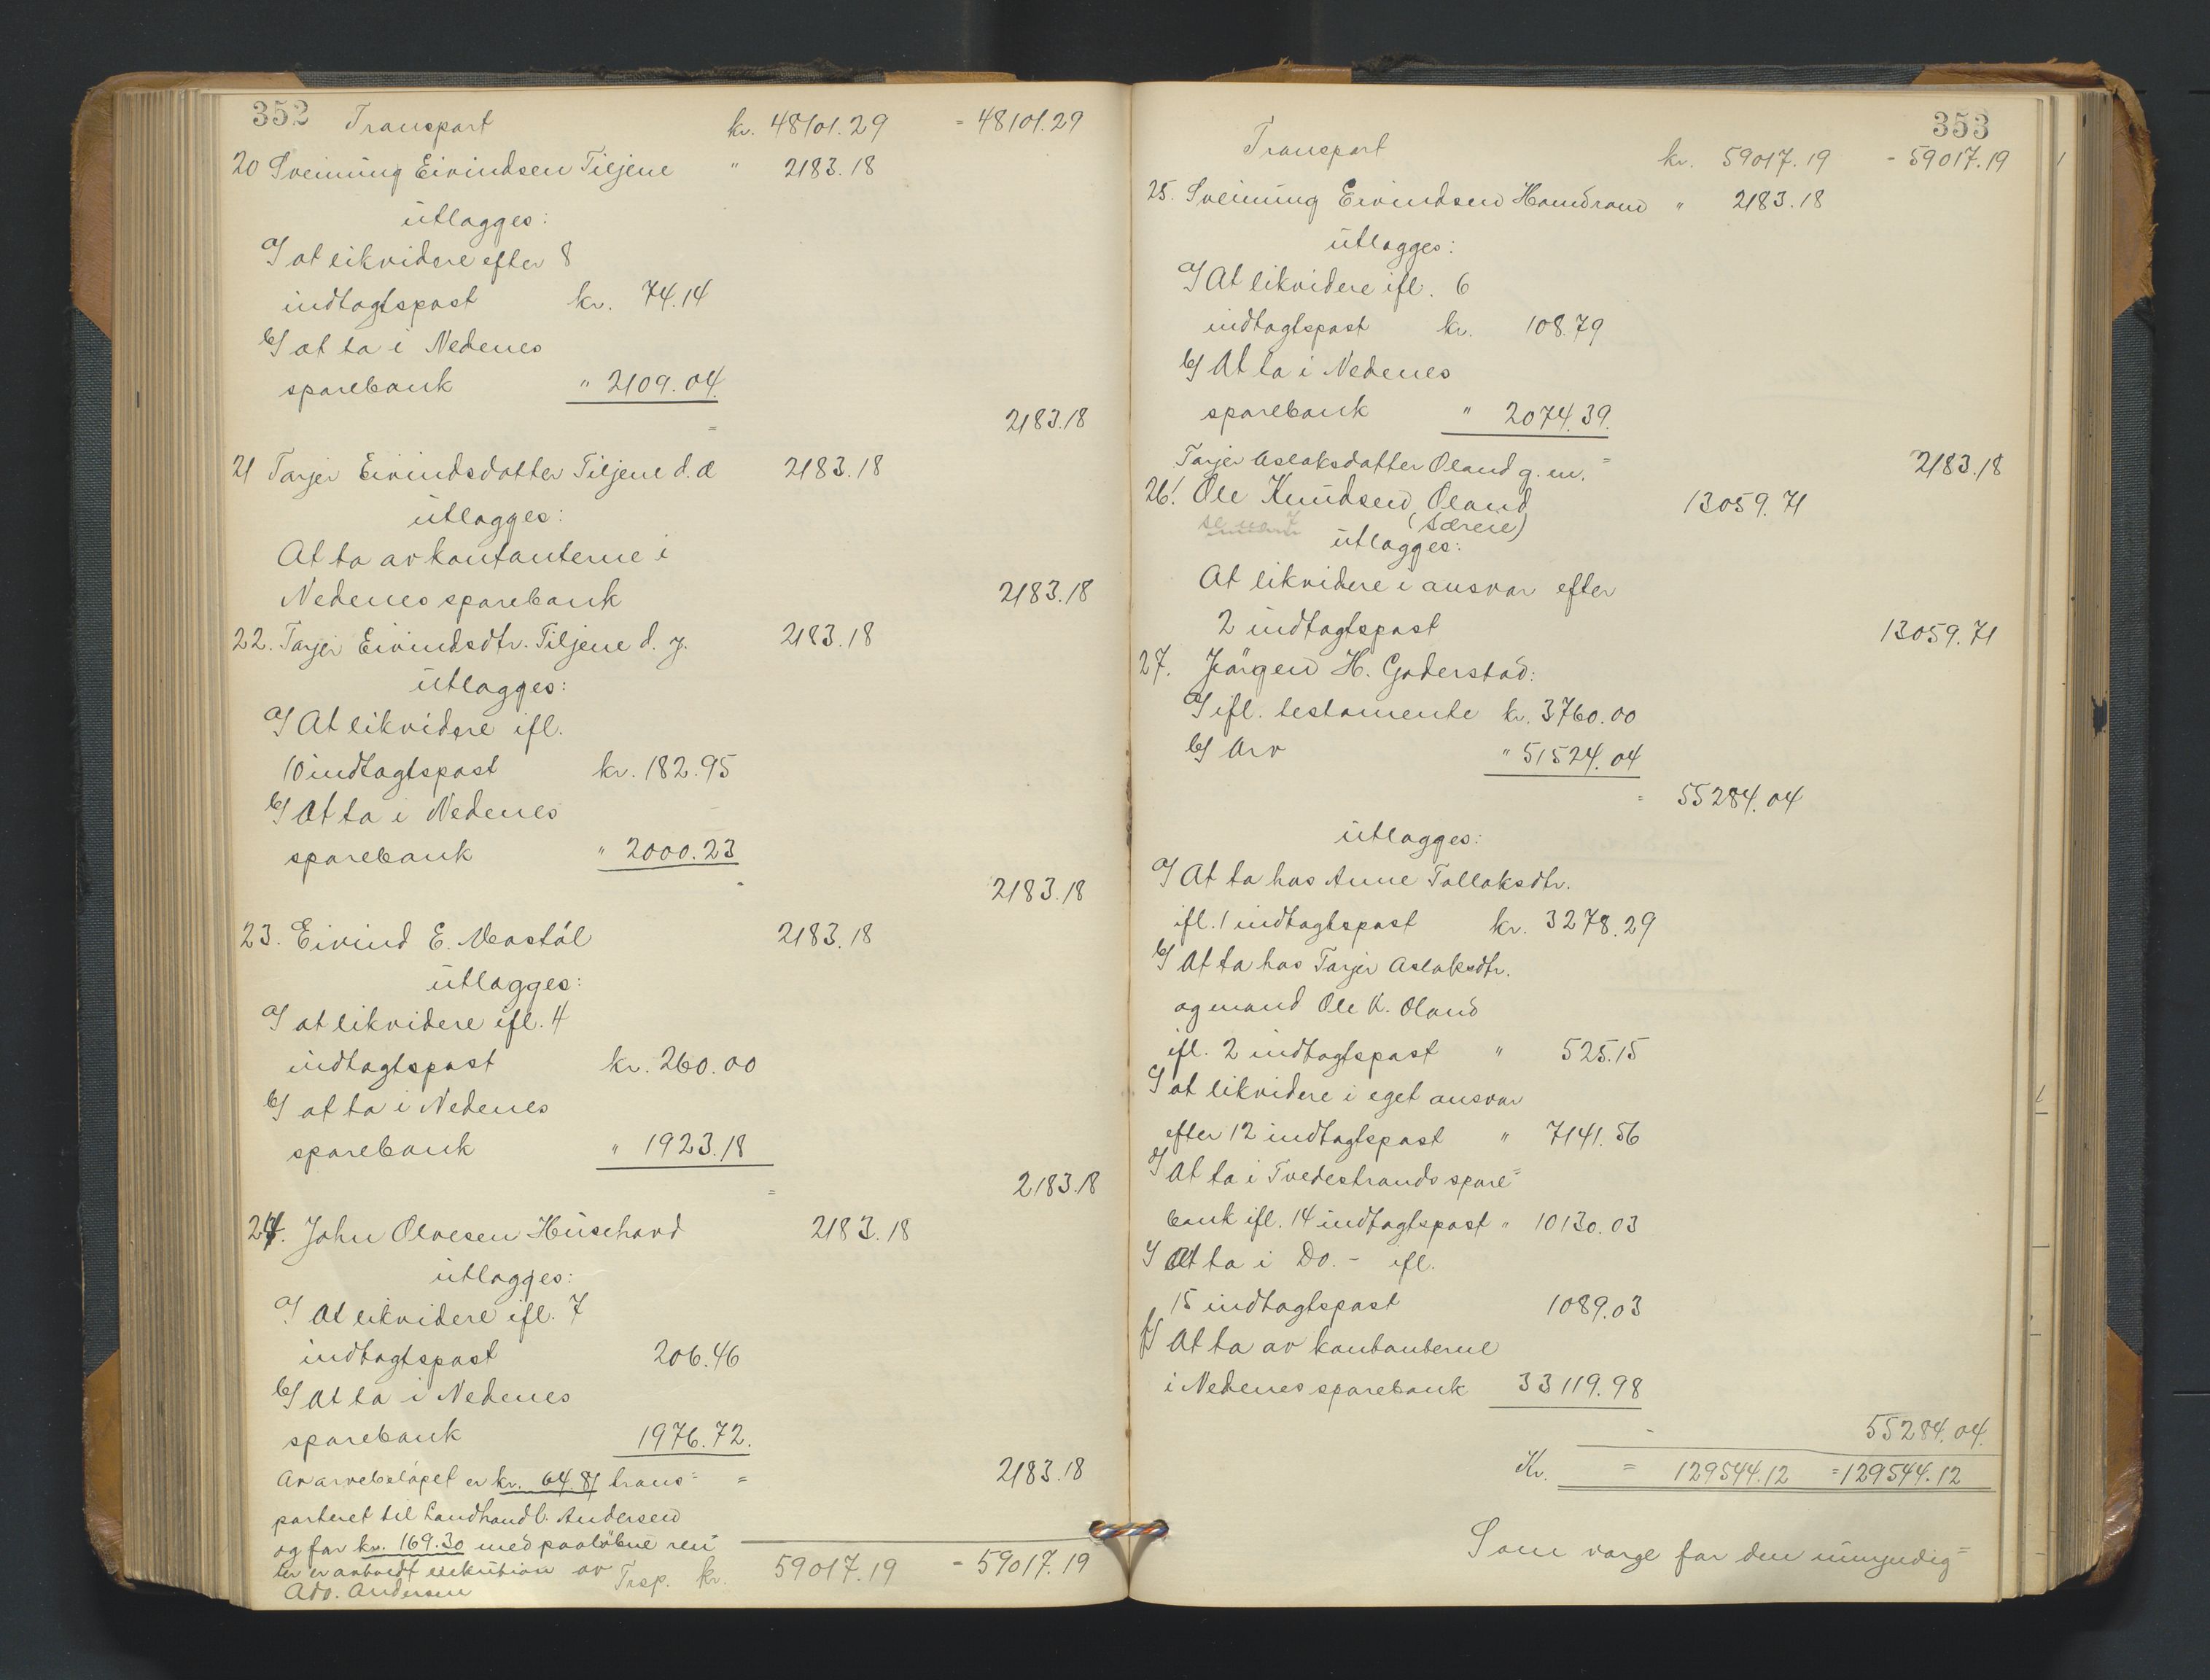 352 Transport kr. 48101.29 = 48101.29
20 Sveinung Eivindsen Tiljene " 2183.18
utlægges:
a/ at likvidere efter 8
indtægtspost kr. 74.14
b/ at ta i Nedenes
sparebank " 2109.04.
= 2183.18
21 Tarjer Eivindsdatter Tiljene d.æ 2183.18
utlægges:
At ta av kontanterne i
Nedenes sparebank 2183.18
22. Tarjer Eivindsdtr. Tiljene d. y. 2183.18
utlægges:
a/ At likvidere ifl.
10 indtægtspost kr. 182.95
b/ At ta i Nedenes
sparebank " 2000.23
- 2183.18
23. Eivind E. Nævstøl 2183.18
utlægges:
a/ at likvidere ifl. 4
indtægtspost kr. 260.00
b/ at ta i Nedenes
sparebank " 1923.18
= 2183.18
24. John Olvesen Husehovd 2183.18
utlægges:
a/ At likvidere ifl. 7
indtægtspost 206.46
b/ At ta i Nedenes
sparebank 1976.72.
Av arvebeløpet er kr. 64.81 trans= = 2183.18
porteret til Landhandl. Andersen
og for kr. 169.30 med paaløbne ren
ter er avholdt exekution av
Adv. Andersen
Trsp. kr. 59017.19 = 59017.19
353
Transport kr. 59017.19 = 59017.19
25. Sveinung Eivindsen Hamdrand " 2183.18
utlægges:
a/ At likvidere ifl. 6
indtægtspost kr. 108.79
b/ At ta i Nedenes
sparebank " 2074.39.
= 2183.18
Tarjer Aslaksdatter Øland g. m.
26. Ole Knudsen Øland 13059.71
(særeie)
utlægges:
At likvidere i ansvar efter
2 indtægtspost 13059.71
27. Jørgen H. Goderstad:
a/ ifl. testamente kr. 3760.00
b/ Arv " 51524.04
= 55284.04
utlægges:
a/ At ta hos Anne Tallaksdtr.
ifl. 1 indtægtspost kr. 3278.29
b/ At ta hos Tarjer Aslaksdtr.
og mand Ole K. Øland
ifl. 2 indtægtspost " 525.15
c/ at likvidere i eget ansvar
efter 12 indtægtspost " 7141.56
d/ At ta i Tvedestrands spare=
bank ifl. 14 indtægtspost " 10130.03
e/ At ta i Do. - ifl.
15 indtægtspost 1089.03
f/ At ta av kontanterne
i Nedenes sparebank 33119.98
- 55284.04.
Kr. = 129544.12 = 129544.12
Som værge for den umyndig=